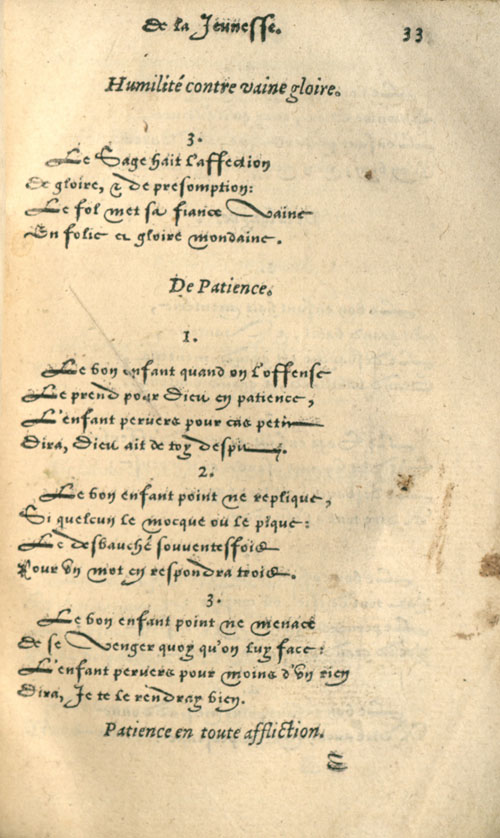 de la Jeunesse.
33
Humilité contre vaine gloire.
3.
Le Sage hait l'affection
De gloire, & de presomption:
Le fol met sa fiance Vaine
En folie et gloire mondaine.
De Patience.
1.
Le bon enfant quand on l'offense
Le prend pour Dieu en patience,
L'enfant pervers pour cas petit
Dira, Dieu ait de toy despit.
2.
Le bon enfant point ne replique,
Si quelcun le mocque ou le pique:
Le desbauché souventesfois
Pour un mot en respondra trois.
3.
Le bon enfant point ne menace
De se Venger quoy qu'on luy face:
L'enfant pervers pour moins d'un rien
Dira, Je te le rendray bien.
Patience en toute affliction.